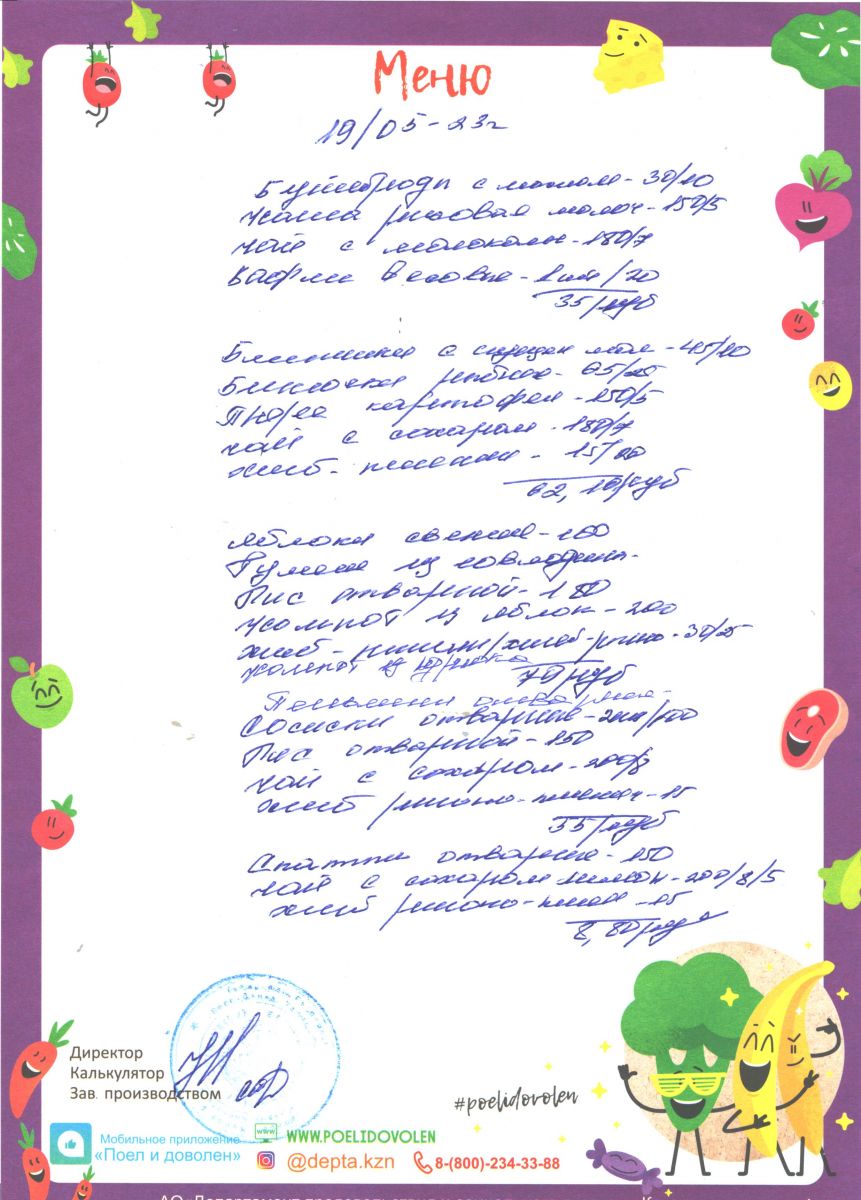 Меню
19/05-23г
Бутерброды с маслом - 30/10
Каша рисовая молоч - 150/5
Чай с молоком - 180/7
Вафли весовые - 1шт/20
35 руб
Блинчики с сгущен мол - 45/10
Биточки рыбные - 65/25
Пюре картофел - 150/5
Чай с сахаром - 180/7
хлеб - пшеничн - 15/20
62, 10 руб
Яблоки свежие - 100
Гуляш из говядины -
Рис отварной - 180
Компот из яблок - 200
хлеб - пшен/хлеб - ржано - 30/25
Компот из
70 руб
Пельмени отварные -
Сосиски отварные - 2шт/100
Рис отварной - 150
Чай с сахаром - 200/8
хлеб ржано - пшенич - 25
55 руб
Спагетти отварные - 150
Чай с сахаром лимон - 200/8/5
хлеб ржано - пшен - 25
8, 80 руб
Директор
Калькулятор
Зав. производством
#poelidovolen
Мобильное приложение
«Поел и доволен»
www WWW.POELIDOVOLEN
@depta.kzn 8-(800)-234-33-88